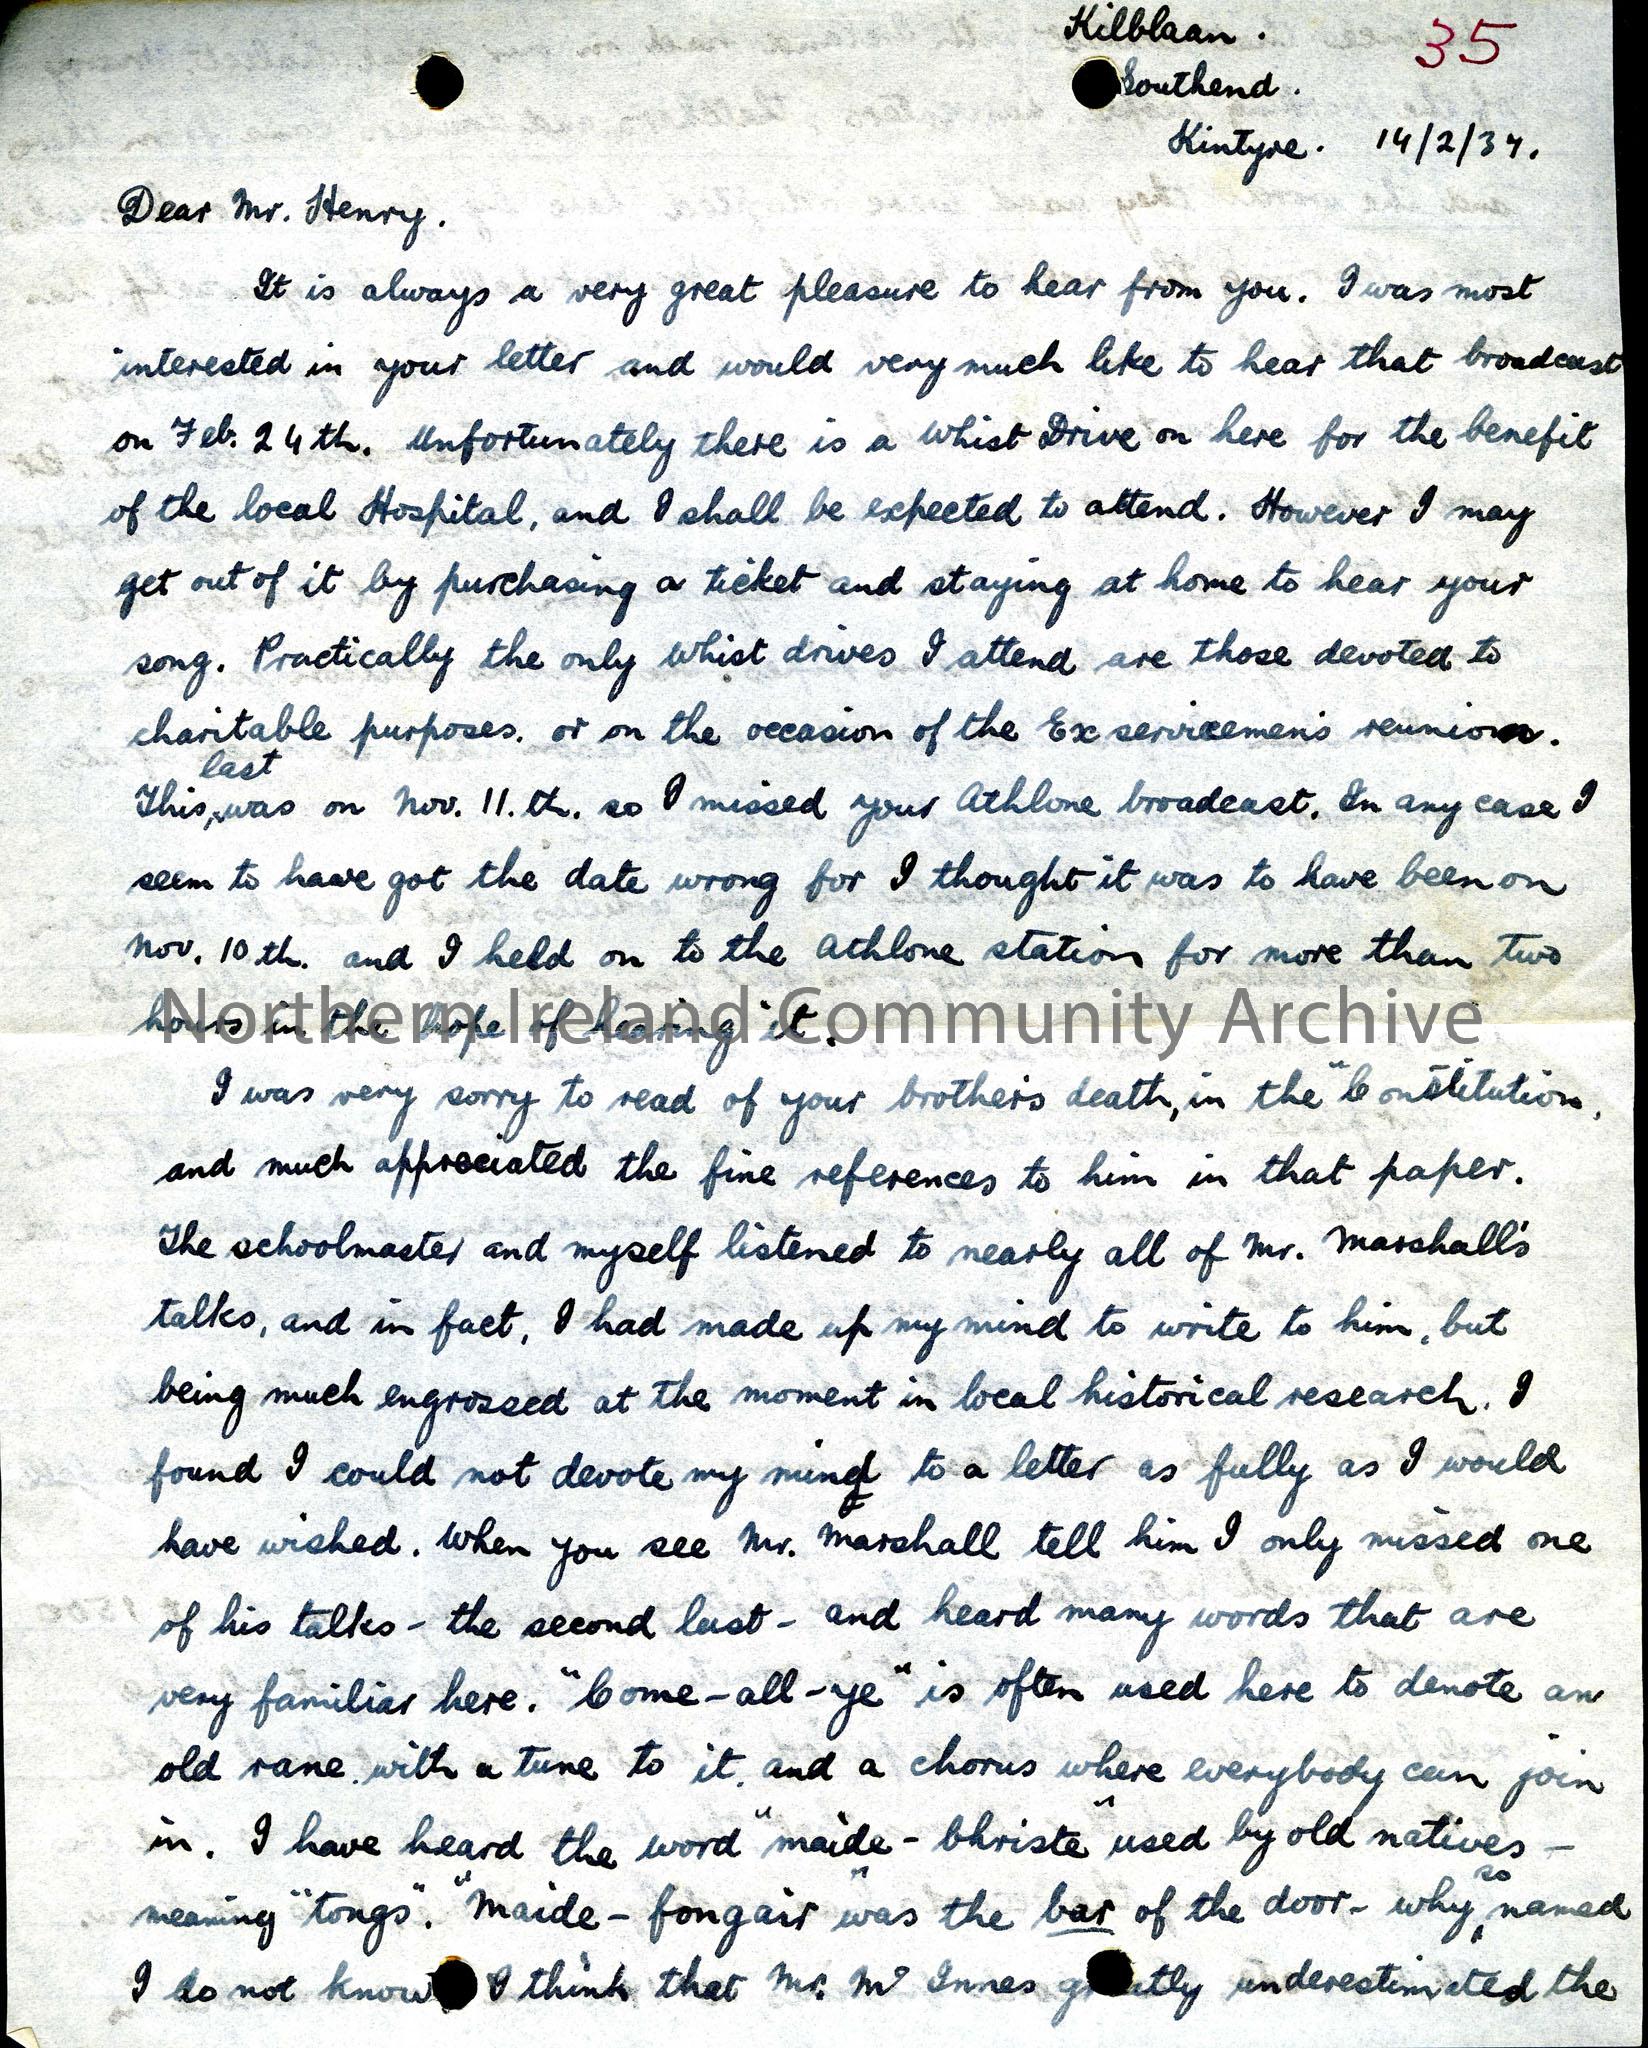 Kilblaan. 35
Southend.
Kintyre. 14/2/34.
Dear Mr. Henry.
It is always a very great pleasure to hear from you. I was most
interested in your letter and would very much like to hear that broadcast
on Feb. 24th. Unfortunately there is a Whist Drive on here for the benefit
of the local Hospital, and I shall be expected to attend. However I may
get out of it by purchasing a ticket and staying at home to hear your
song. Practically the only Whist drives I attend are those devoted to
charitable purposes. or on the occasion of the Ex servicemen's reunion.
last
This, was on Nov. 11.th. so I missed your Athlone broadcast. In any case I
seem to have got the date wrong for I thought it was to have been on
Nov. 10th. and I held on to the Athlone station for more than two
hours in the hope of hearing it.
Northern Ireland Community Archive
I was very sorry to read of your brother's death, in the "Constitution,
and much appreciated the fine references to him in that paper.
The schoolmaster and myself listened to nearly all of Mr. Marshall's
talks, and in fact, I had made up my mind to write to him, but
being much engrossed at the moment in local historical research. I
found I could not devote my mind to a letter as fully as I would
have wished. When you see Mr. Marshall tell him I only missed one
of his talks - the second last - and heard many words that are
very familiar here. "Come-all-ye" is often used here to denote an
old rane. with a tune to it. and a chorus where everybody can join
in. I have heard the word "maide-bhriste" used by old natives -
so
meaning "tongs". "Maide-fongair" was the bar of the door - why named
I do not know I think that Mr. Mc Innes greatly underestimated the